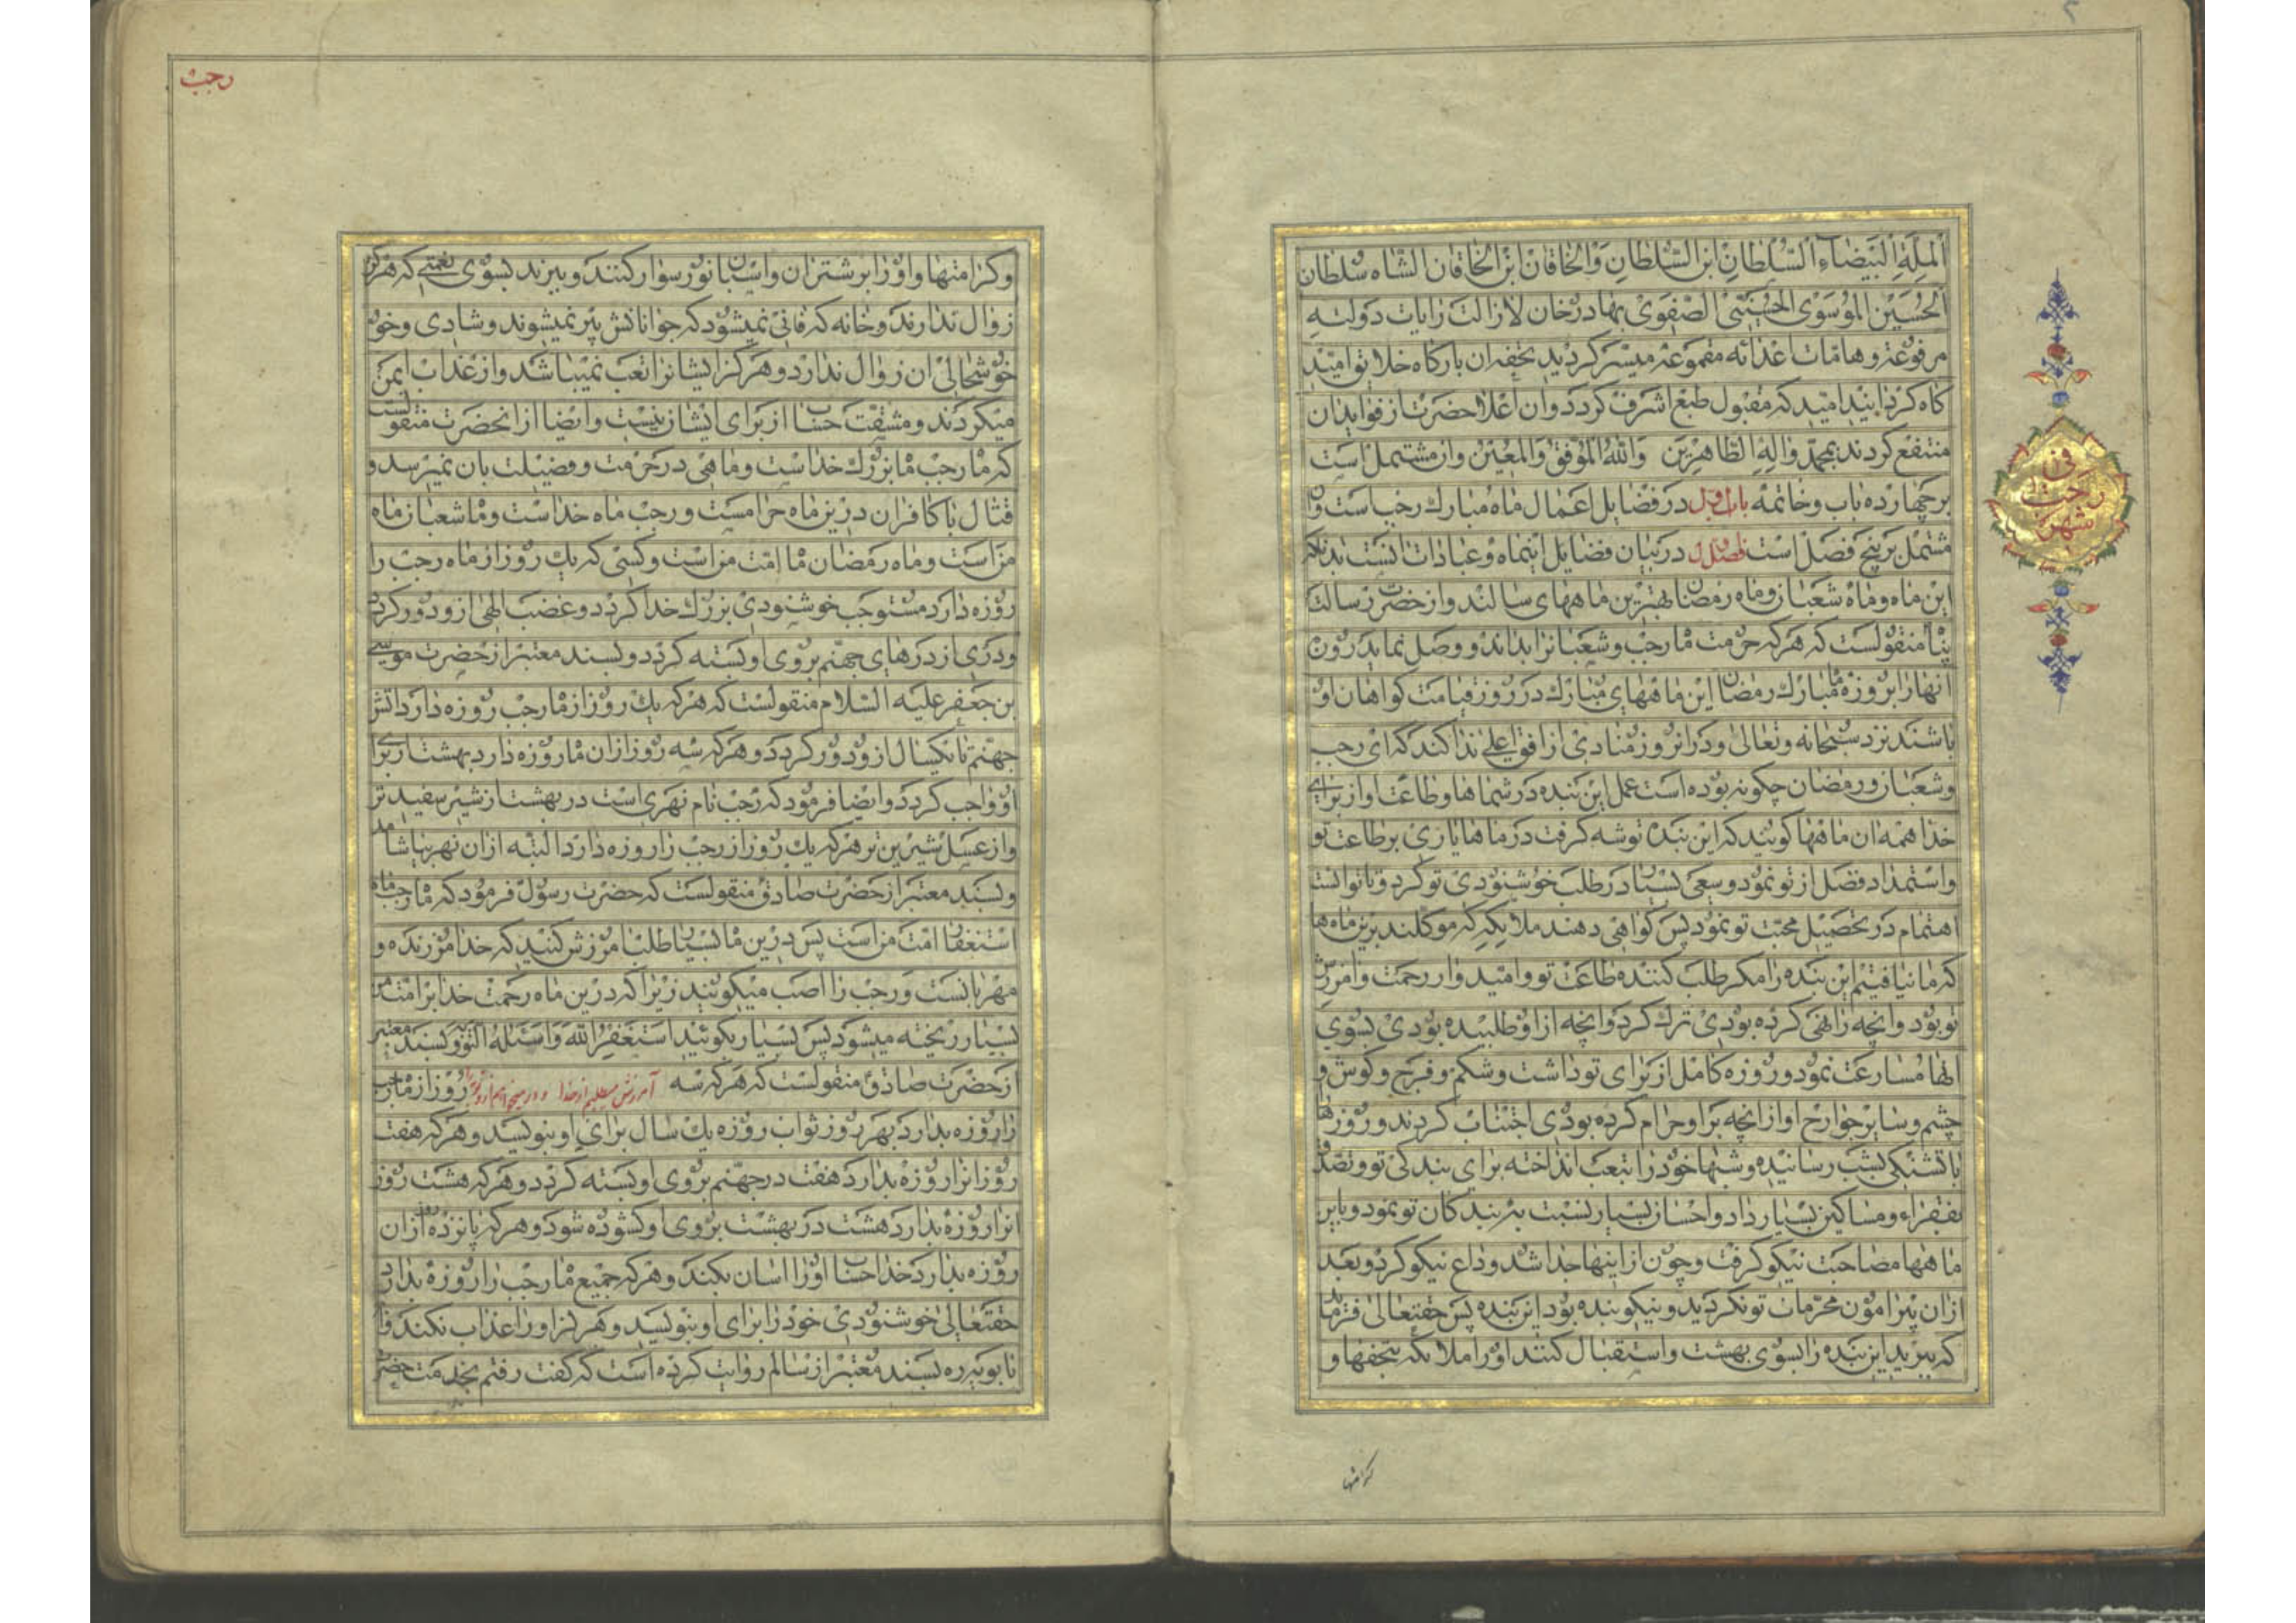 المِلَّةِ البَيضاءِ السُّلطانِ ابنِ السُّلطانِ وَالخاقان ابن الخاقان الشاه سلطان
الحُسَین المُوسَوی الحُسَینی الصَّفَوی بهادر خان لا زالت رایات دولته
مرفوعة و هامات اعدائه مقموعة میسر کردید تحفه ان بارکاه خلایق امید
کاه کردانید امید که مقبول طبع اشرف کردد و ان اعلاحضرت از فواید ان
منتفع کردند بمحمد و اله الطاهرین والله الموفق والمعین و ان مشتمل است
بر چهارده باب و خاتمه باب اول در فضایل اعمال ماه مبارک رجب است و ان
مشتمل بر پنج فصل است فصل اول در بیان فضایل اینماه و عبادات انست بدانکه
این ماه و ماه شعبان و ماه رمضان بهترین ماههای سالند و از حضرت رسالت
پناه منقولست که هرکه حرمت ماه رجب و شعبانرا بداند و وصل نماید روزه
انهارا بروزه ماه مبارک رمضان این ماههای مبارک در روز قیامت کواهان او
باشند نزد سبحانه و تعالی و در انروز منادی از افق اعلی ندا کند که ای رجب
و شعبان و رمضان چکونه بوده است عمل این بنده در شماها و طاعت او از برای
خدا همه ان ماهها کویند که این بنده توشه کرفت در ماها یاری بر طاعت تو
و استمداد فضل از تو نمود و سعی بسیار در طلب خوشنودی تو کرد و تا توانست
اهتمام در تحصیل محبت تو نمود پس کواهی دهند ملایکه که موکلند برین ماه ها
که ما نیافتیم این بنده را مکر طلب کننده طاعت تو و امیدوار رحمت و امرزش
تو بود و انچه را نهی کرده بودی ترک کرد و انچه از او طلبیده بودی بسوی
انها مسارعت نمود و روزه کامل از برای تو داشت و شکم و فرج و کوش و
چشم و سایر جوارح او از انچه بر او حرام کرده بودی اجتناب کردند و روزها
با تشنکی بشب رسانیده و شبها خود را بتعب انداخته برای بندکی تو و تصدق
بفقراء و مساکین بسیار داد و احسان بسیار نسبت به بندکان تو نمود و با این
ماهها مصاحبت نیکو کرفت و چون از اینها جدا شد وداع نیکو کرد و بعد
ازان پیرامون محرمات تو نکردید و نیکو بنده بود این بنده پس حقتعالی فرماید
که ببرید این بنده را بسوی بهشت و استقبال کنند او را ملایکه بتحفها و
کرامتها
فی
رجب
شهر
رجب
و کرامتها و او را بر شتران و اسبان نور سوار کنند و ببرند بسوی نعمتی که هرکز
زوال ندارند و خانه که فانی نمیشود که جوانانش پیر نمیشوند و شادی و خو
خوشحالی ان زوال ندارد و هرکز ایشانرا تعب نمیباشد و از عذاب ایمن
میکردند و مشقت حساب از برای ایشان نیست و ایضا از انحضرت منقولست
که ماه رجب ماه بزرک خداست و ماهی در حرمت و فضیلت بان نمیرسد و
قتال با کافران درین ماه حرامست و رجب ماه خداست و ماه شعبان ماه
من است و ماه رمضان ماه امت من است و کسی که یک روز از ماه رجب را
روزه دارد مستوجب خوشنودی بزرک خدا کردد و غضب الهی ازو دور کردد
و دری از درهای جهنم بروی او بسته کردد و بسند معتبر از حضرت موسی
بن جعفر علیه السلام منقولست که هرکه یک روز از ماه رجب روزه دارد اتش
جهنم تا یکسال ازو دور کردد و هرکه سه روز ازان ماه روزه دارد بهشت از برای
او واجب کردد و ایضا فرمود که رجب نام نهری است در بهشت از شیر سفید تر
و از عسل شیرین تر هرکه یک روز از رجب را روزه دارد البته ازان نهر بیاشامد
و بسند معتبر از حضرت صادق منقولست که حضرت رسول فرمود که ماه رجب ماه
استغفار امت من است پس درین ماه بسیار طلب امرزش کنید که خدا امرزنده و
مهربانست و رجب را اصب میکویند زیرا که درین ماه رحمت خدا بر امت من
بسیار ریخته میشود پس بسیار بکوئید استغفر الله و اسئله التوبه و بسند معتبر
از حضرت صادق منقولست که هرکه سه آمرزش میطلبم از خدا روز از ماه رجب
را روزه بدارد بهر روز ثواب روزه یک سال برای او بنویسد و هرکه هفت
روز انرا روزه بدارد هفت در جهنم بروی او بسته کردد و هرکه هشت روز
انرا روزه بدارد هشت در بهشت بروی او کشوده شود و هرکه پانزده روز ازان
روزه بدارد خدا حساب او را اسان بکند و هرکه جمیع ماه رجب را روزه بدارد
حقتعالی خوشنودی خود را برای او بنویسد و هرکز او را عذاب نکند و ا
نابویه ره بسند معتبر از سالم روایت کرده است که کفت رفتم بخدمت حضرت